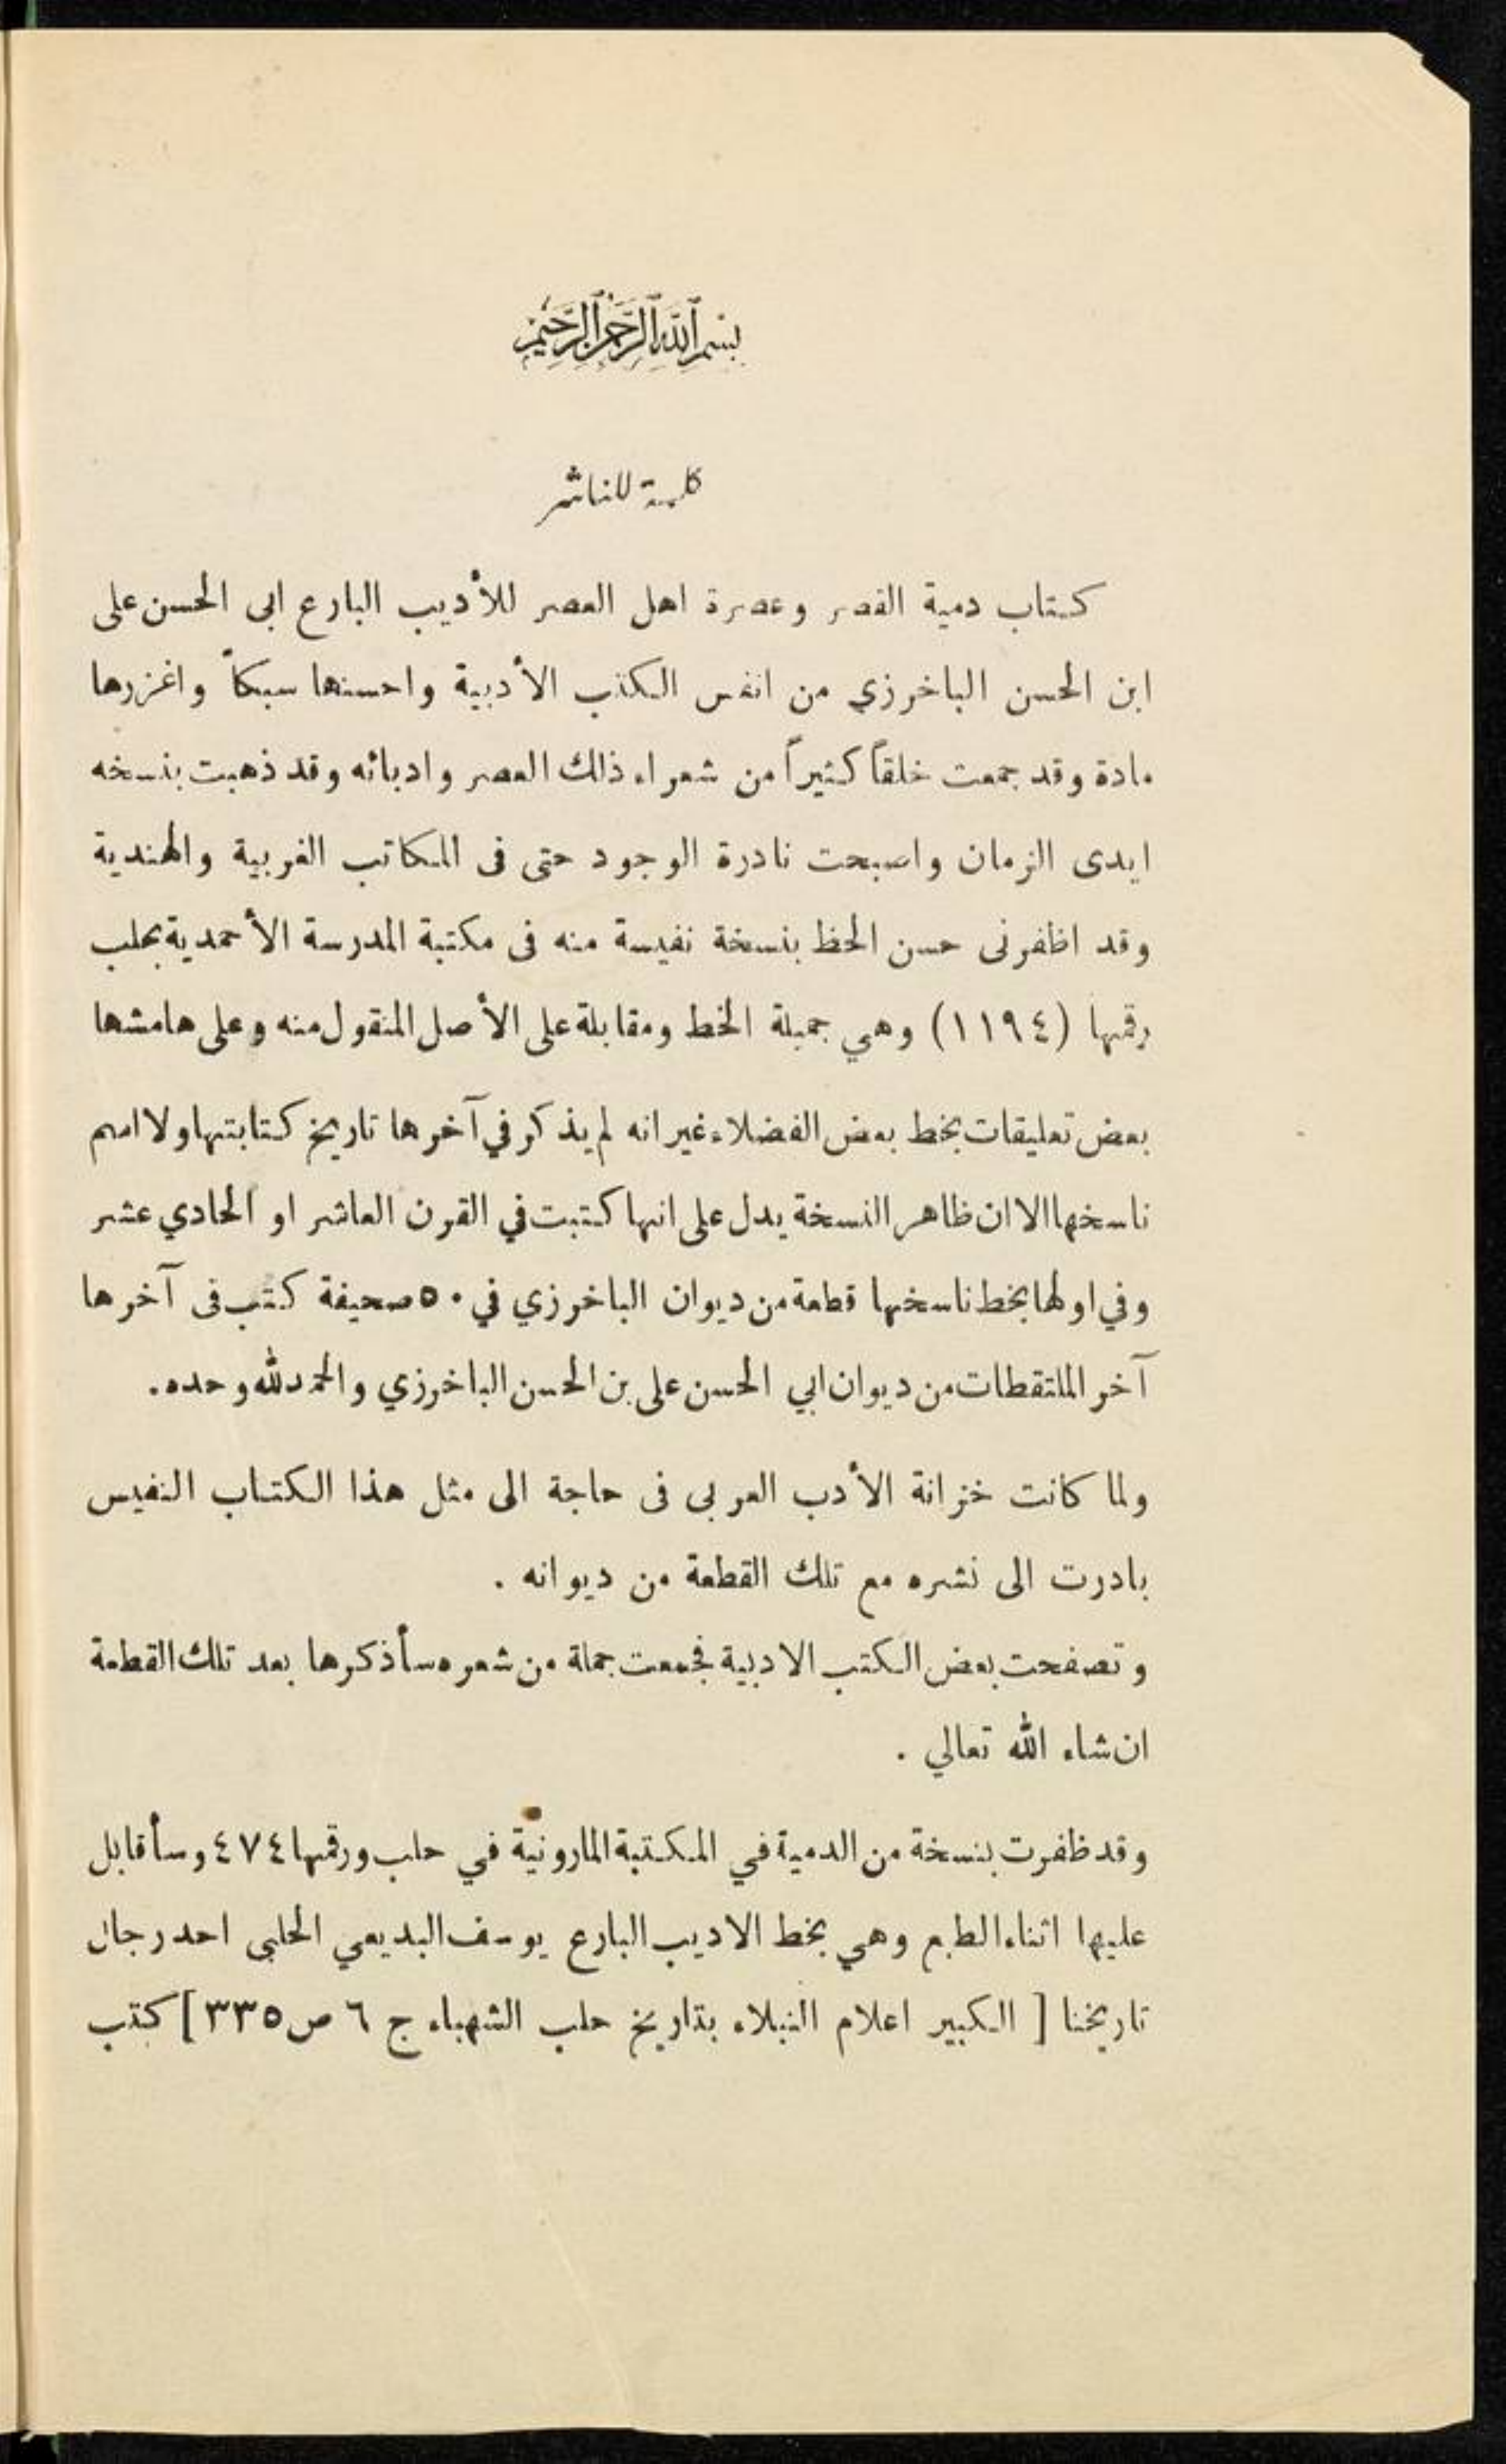 بسم الله الرحمن الرحيم
كلمة للناشر
كتاب دمية القصر وعصرة اهل العصر للأديب البارع ابى الحسن على
ابن الحسن الباخرزي من انفس الكتب الأدبية واحسنها سبكاً واغزرها
مادة وقد جمعت خلقاً كثيراً من شعراء ذلك العصر وادبائه وقد ذهبت بنسخه
ايدى الزمان واصبحت نادرة الوجود حتى فى المكاتب الغربية والهندية
وقد اظفرنى حسن الحظ بنسخة نفيسة منه فى مكتبة المدرسة الأحمدية بحلب
رقمها (١١٩٤) وهي جميلة الخط ومقابلة على الأصل المنقول منه وعلى هامشها
بعض تعليقات بخط بعض الفضلاء غير انه لم يذكر في آخرها تاريخ كتابتها ولا اسم
ناسخها الا ان ظاهر النسخة يدل على انها كتبت في القرن العاشر او الحادي عشر
وفي اولها بخط ناسخها قطعة من ديوان الباخرزي في ٥٠ صحيفة كتب فى آخرها
آخر الملتقطات من ديوان ابي الحسن على بن الحسن الباخرزي والحمد لله وحده.
ولما كانت خزانة الأدب العربى فى حاجة الى مثل هذا الكتاب النفيس
بادرت الى نشره مع تلك القطعة من ديوانه .
وتصفحت بعض الكتب الادبية فجمعت جملة من شعره سأذكرها بعد تلك القطعة
ان شاء الله تعالي .
وقد ظفرت بنسخة من الدمية في المكتبة المارونية في حلب ورقمها ٤٧٤ وسأقابل
عليها اثناء الطبع وهي بخط الاديب البارع يوسف البديعي الحلبى احد رجال
تاريخنا [ الكبير اعلام النبلاء بتاريخ حلب الشهباء ج ٦ ص ٣٣٥ ] كتب